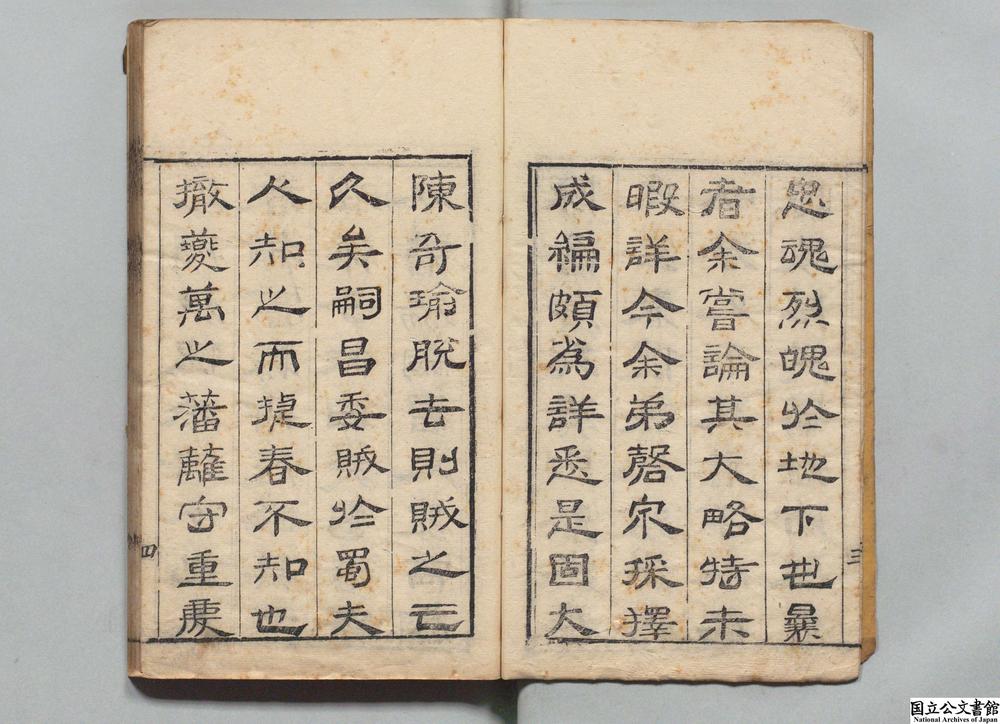 忠魂烈魄於地下也曩
者余嘗論其大略特未
暇詳今余弟磬泉採擇
成編頗為詳悉是固大
三
陳奇瑜脫去則賊之亡
久矣嗣昌委賊於蜀夫
人知之而捷春不知也
撤夔萬之藩蘺守重慶
四
国立公文書館
National Archives of Japan